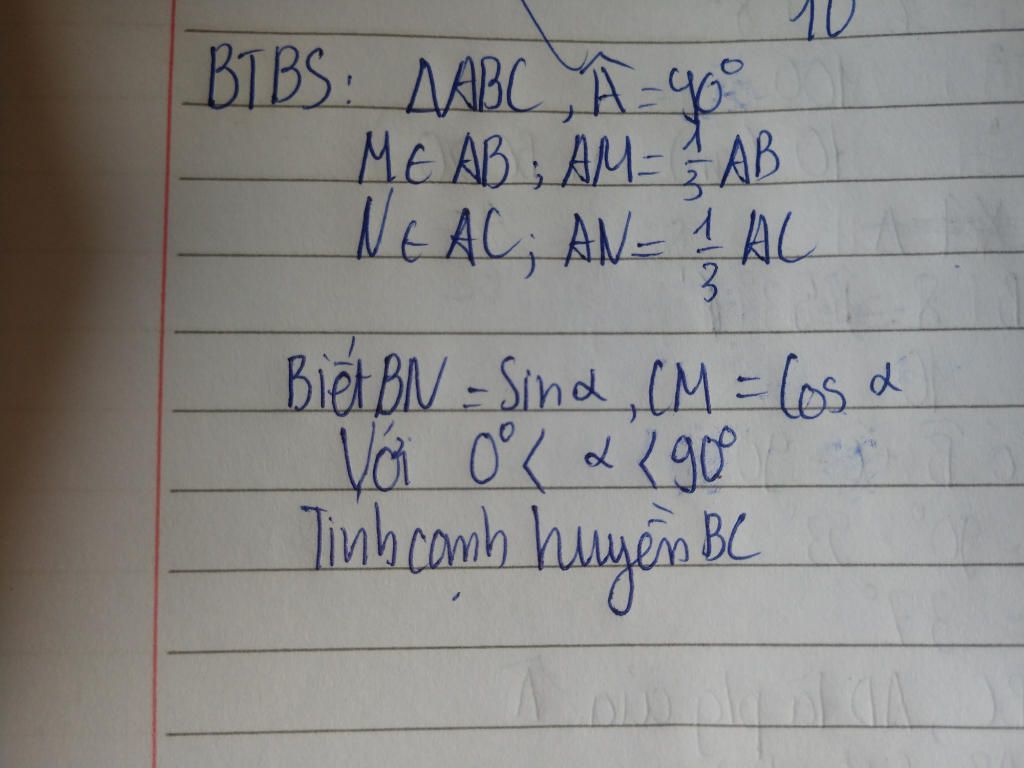 10
BTBS: ΔABC, Â = 90°
M ∈ AB; AM = 1/3 AB
N ∈ AC; AN = 1/3 AC
Biết BN = Sin α, CM = Cos α
Với 0° < α < 90°
Tính cạnh huyền BC